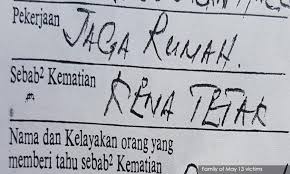 Pekerjaan JAGA RUMAH.
Sebab² Kematian KENA TETAK
Nama dan Kelayakan orang yang
memberi tahu sebab² Kematian
Family of May 13 victims